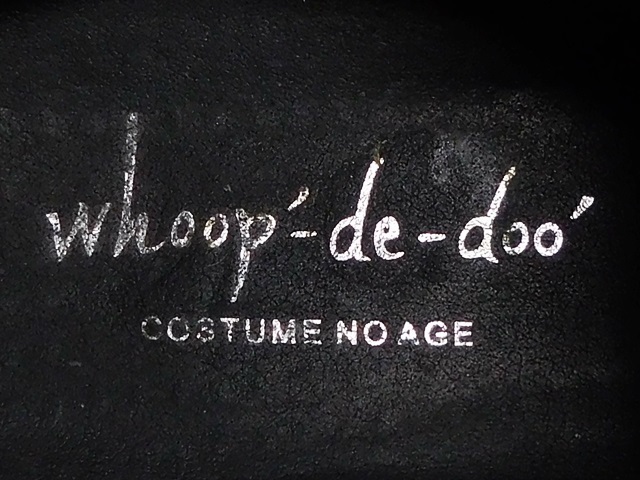 whoop'-de-doo'
COSTUME NO AGE